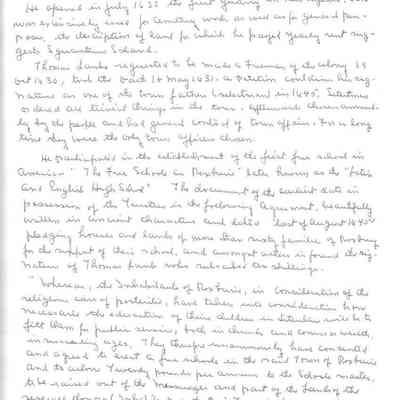 He opened in July 1633 the first
was exclusively used for Cemetery work as well as for general pur-
pose, the description of land for which he payed yearly rent sug-
gests Squantum Island.
Thomas Lamb requested to be made a Freeman of the Colony 19
Oct 1630, took the Oath 18 May 1631. a petition contains his sig-
nature as one of the town fathers (selectmen) in 1648. Selectmen
ordered all trivial things in the town. Afterward chosen annual-
ly by the people and had general control of town affairs. For a long
time they were the only town officers chosen.
He participated in the establishment of the first free school in
America "The Free Schools in Roxburie" later known as the "Latin
and English High School" The document of the earliest date in
possession of the Trustees is the following agreement, beautifully
written in ancient characters and dated last of August 1645
pledging houses and lands of more than sixty families of Roxbury
for the support of their school, and amongst others is found the sig-
nature of Thomas Lamb who subscribes shillings.
"Whereas, the Inhabitants of Roxburie, in consideration of the
religious care of posteritie, have taken into consideration how
necessarie the education of their children in literature will be to
fitt them for publicke service, both in church and commonwealth,
in succeeding ages. They therefore unanimously have consented
and agreed to erect a free schoole in the said Town of Roxburie
and to allow Twenty pounds per annum to the Schoole master,
to be raised out of the Messuages and part of the Lands of the